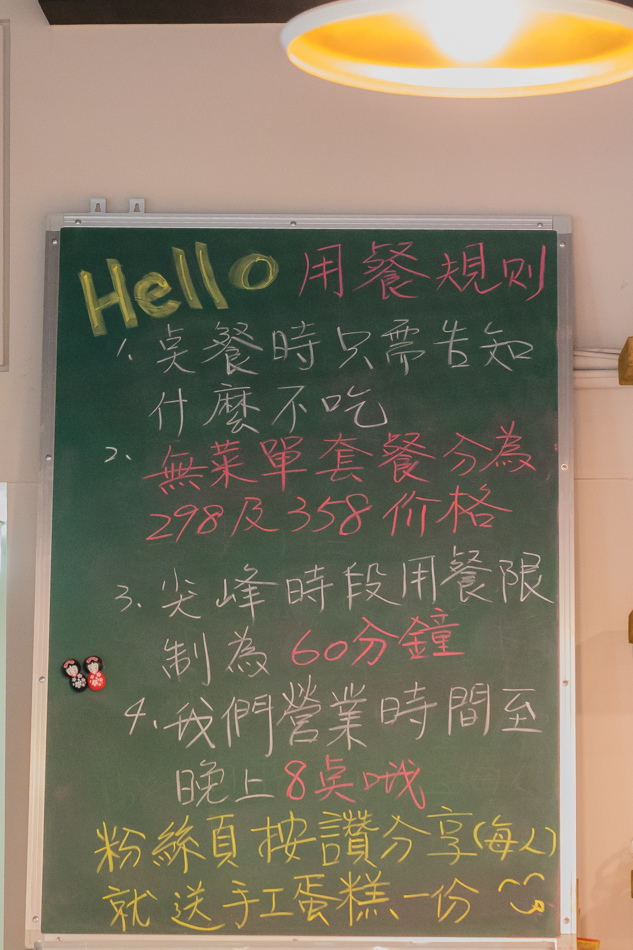 Hello 用餐規則
1. 点餐時只需告知
什麼不吃
2. 無菜單套餐分為
298及358价格
3. 尖峰時段用餐限
制為 60分鐘
4. 我們營業時間至
晚上8点哦
粉絲頁按讚分享(每人)
就送手工蛋糕一份